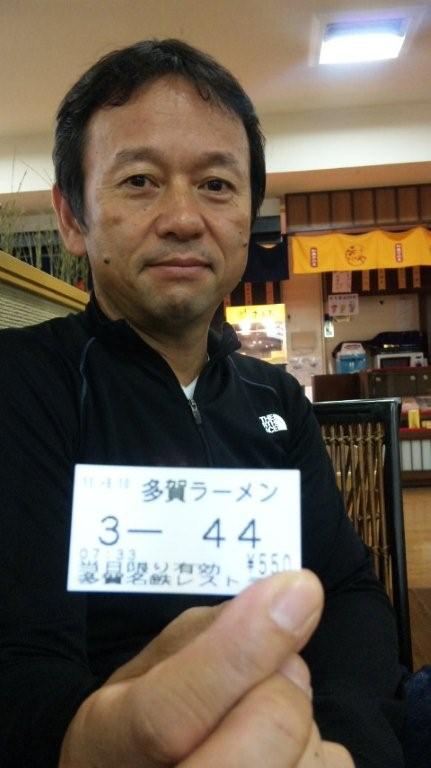 THE
NORTH
FACE
多賀ラーメン
3ー 44
07:33
¥550
当日限り有効
多賀名鉄レスト